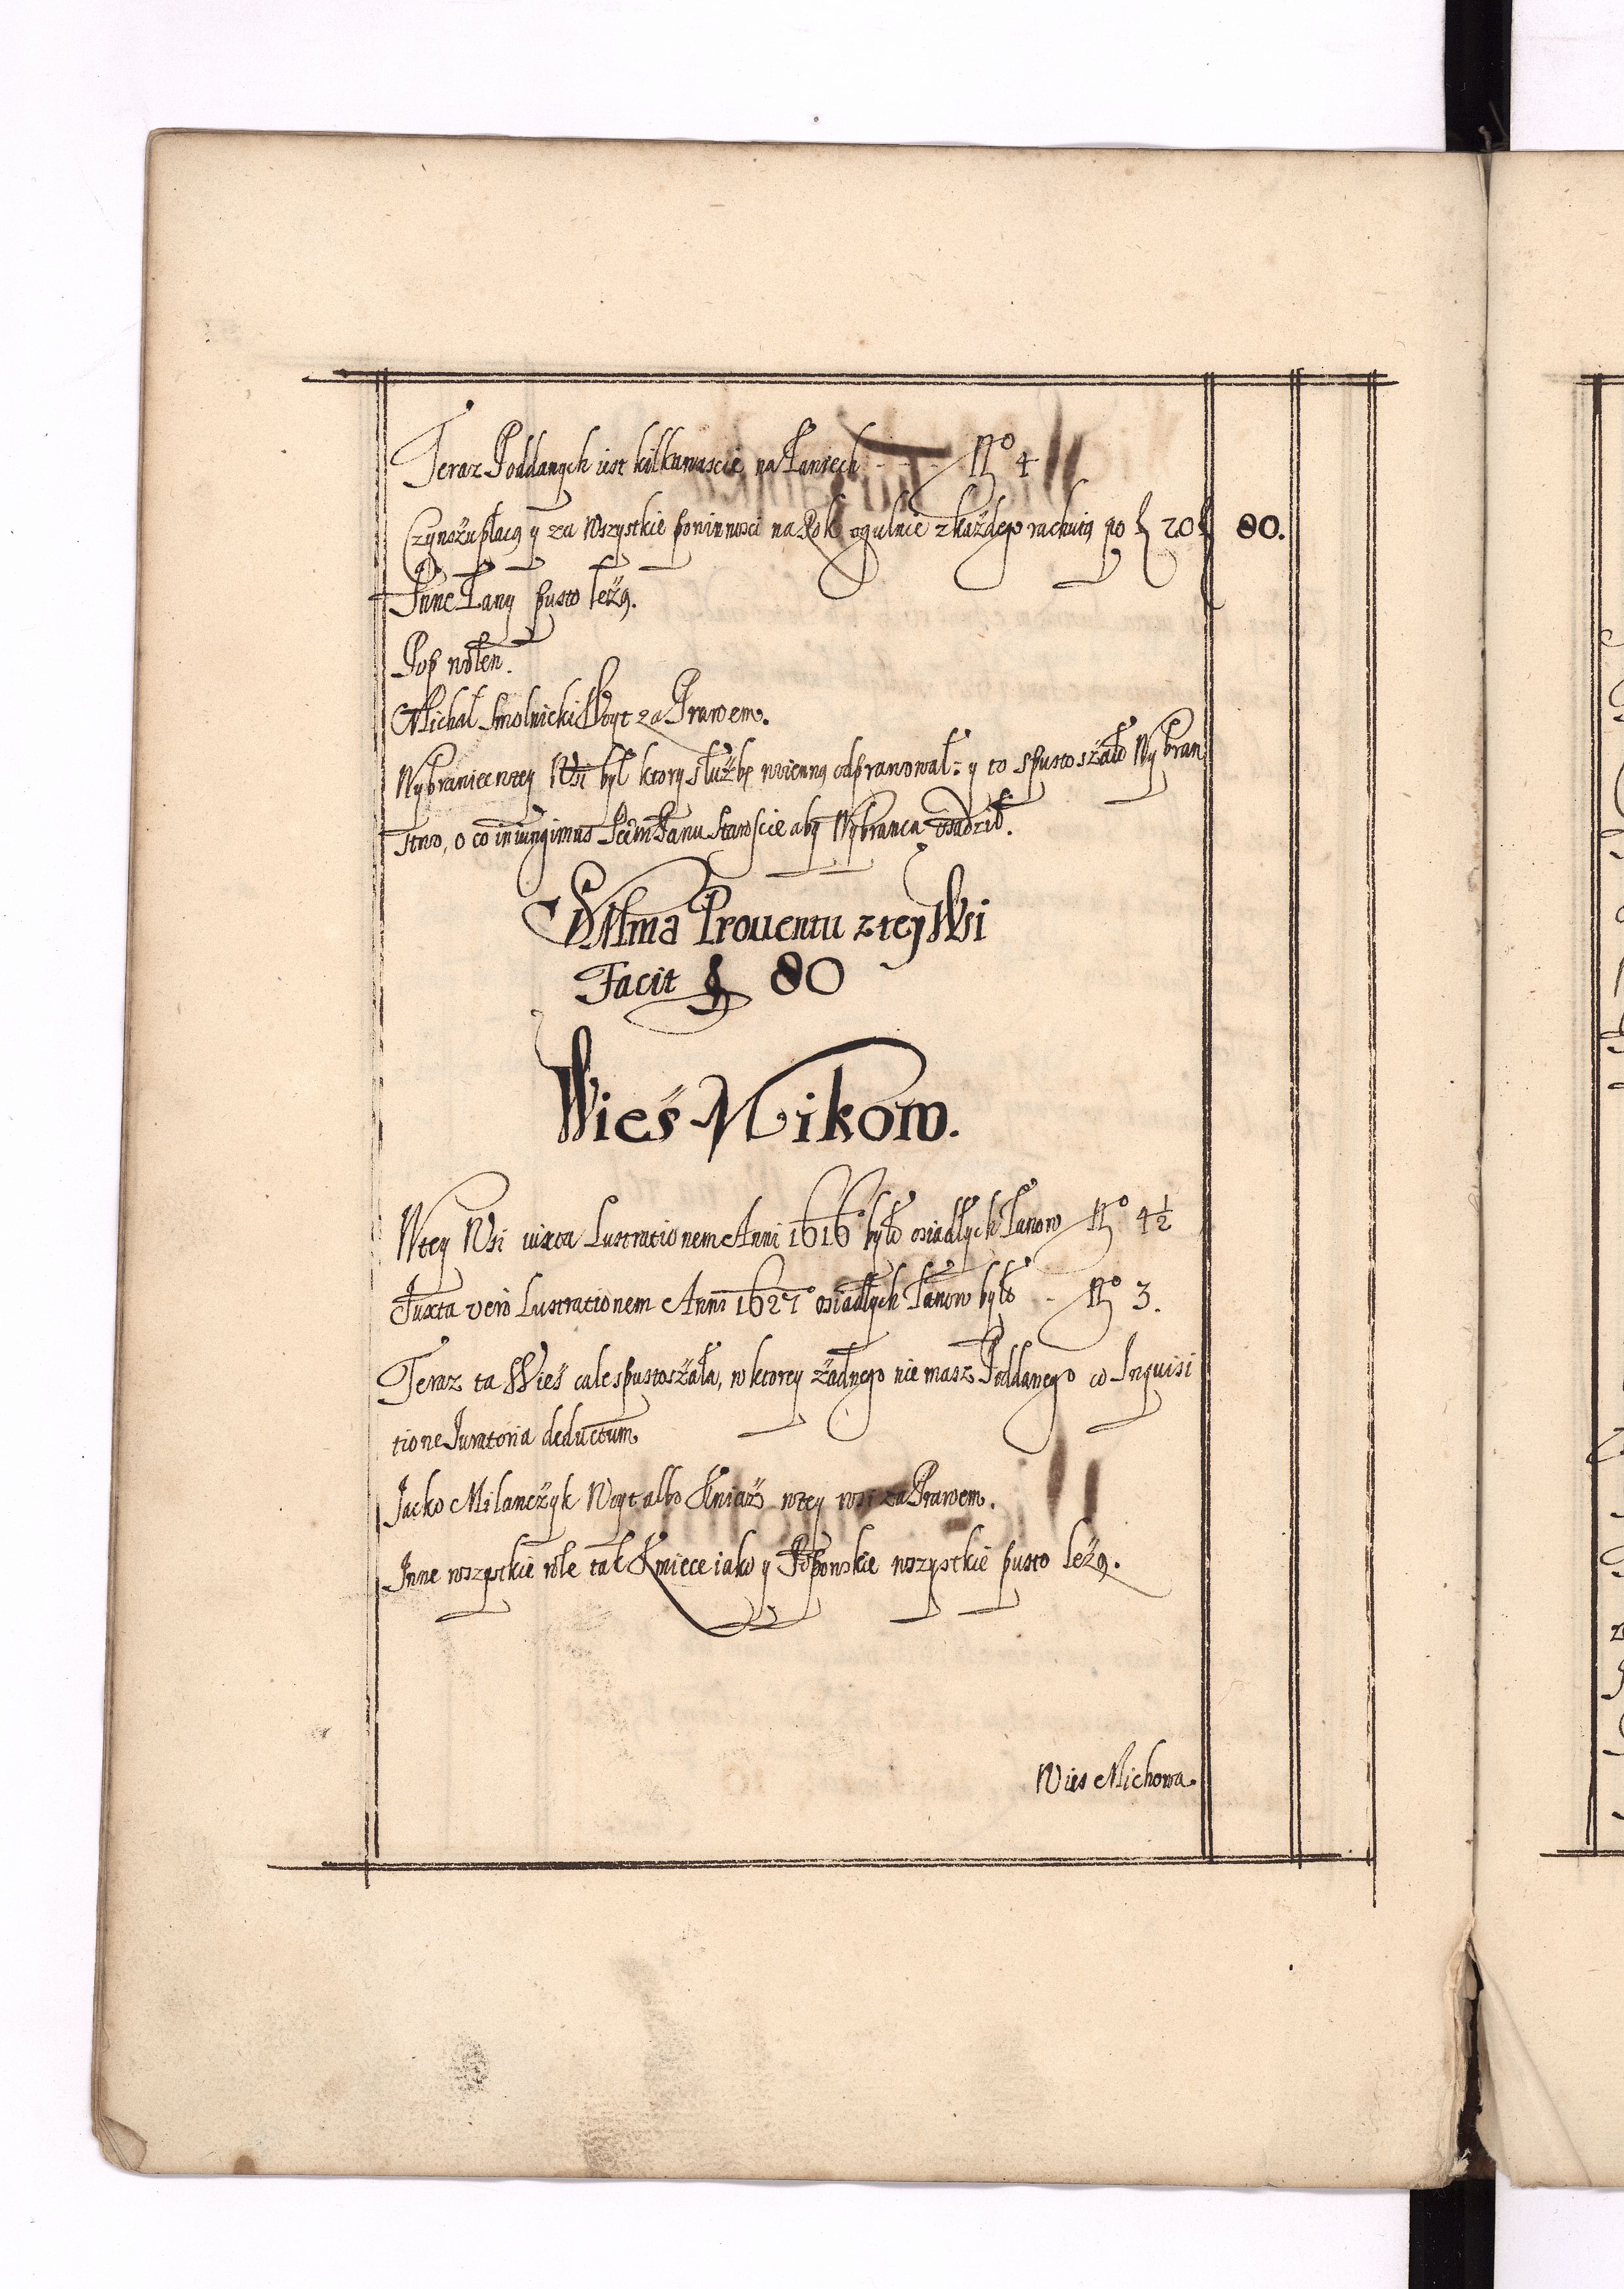 Teraz Poddanych iest kilkunascie na Łaniech - - - Nº 4
Czynszu płacą y za Wszystkie powinnosci na Rok ogulnie z każdego rachuią po f 20 f 80.
Inne Łany pusto leżą.
Pop wolen.
Michał Smolnicki Woyt za Prawem.
Wybraniec w tey Wsi był ktory służbę woienną odprawował: y to spustoszało Wybran
stwo, o co iniungimus Panu Staroscie aby Wybranca osadził.
Summa Prouentu z tey Wsi
Facit f 80
Wieś Nikow.
W tey Wsi iuxta Lustrationem Anni 1616 było osiadłych Łanow Nº 4½
Juxta vero Lustrationem Anni 1627º osiadłych Łanow było - Nº 3.
Teraz ta Wieś cale spustoszała, w ktorey żadnego nie masz Poddanego co Inquisi
tione Juratoria deductum
Jacko Milanczyk Woyt albo Kniaź w tey wsi za Prawem.
Inne wszystkie role tak Kmiece iako y Popowskie wszystkie pusto leżą.
Wies Michowa.